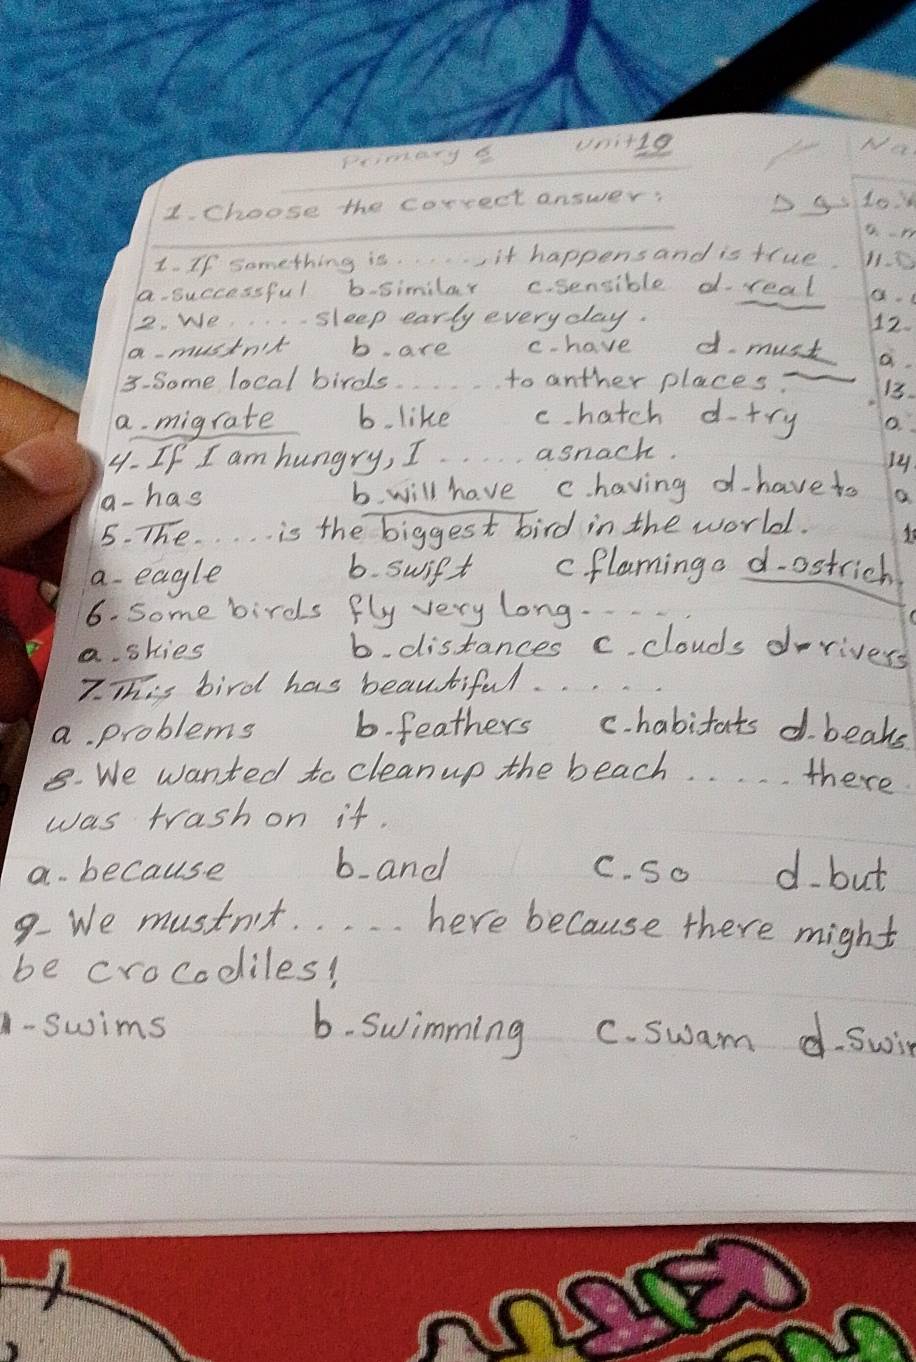 Primary 6 Unit 10 Na
1. Choose the correct answer:
1. If something is ......, it happens and is true.
a. successful b. similar c. sensible d. real
2. We ...... sleep early every day.
a. mustn't b. are c. have d. must
3. Some local birds ....... to anther places.
a. migrate b. like c. hatch d. try
4. If I am hungry, I ..... a snack.
a- has b. will have c. having d. have to
5. The ..... is the biggest bird in the world.
a- eagle b. swift c flamingo d. ostrich
6. Some birds fly very long .....
a. skies b. distances c. clouds d. rivers
7. This bird has beautiful .....
a. problems b. feathers c. habitats d. beaks
8. We wanted to clean up the beach ..... there
was trash on it.
a. because b. and c. so d. but
9- We mustn't ..... here because there might
be crocodiles!
- swims b. swimming c. swam d.
10.
11.
12.
a.
13.
a.
14.
a